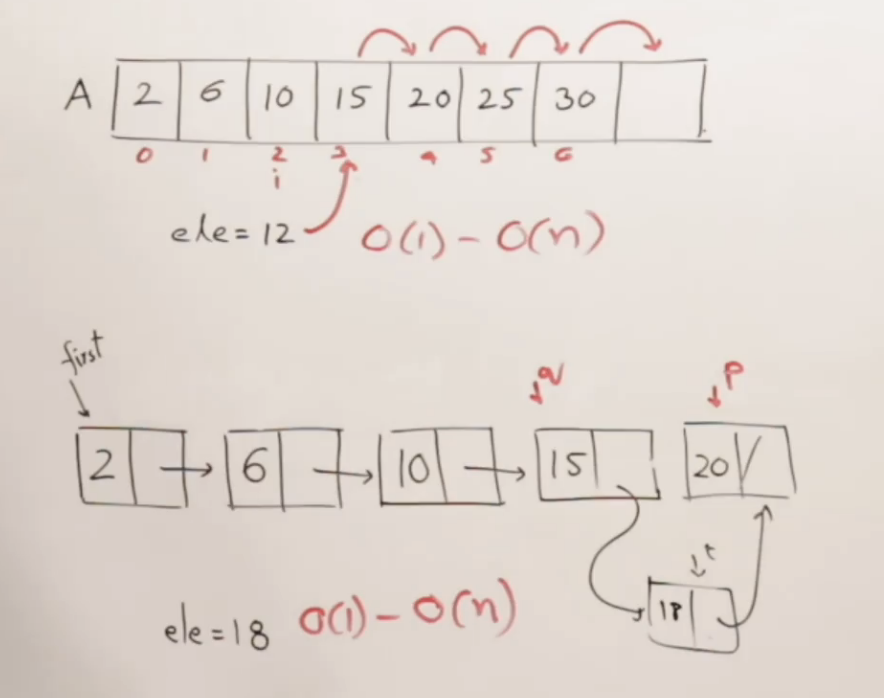 A 2 6 10 15 20 25 30
0 1 2 3 4 5 6
i
ele = 12 O(1) - O(n)
first
q p
2 6 10 15 20 /
t
18
ele = 18 O(1) - O(n)